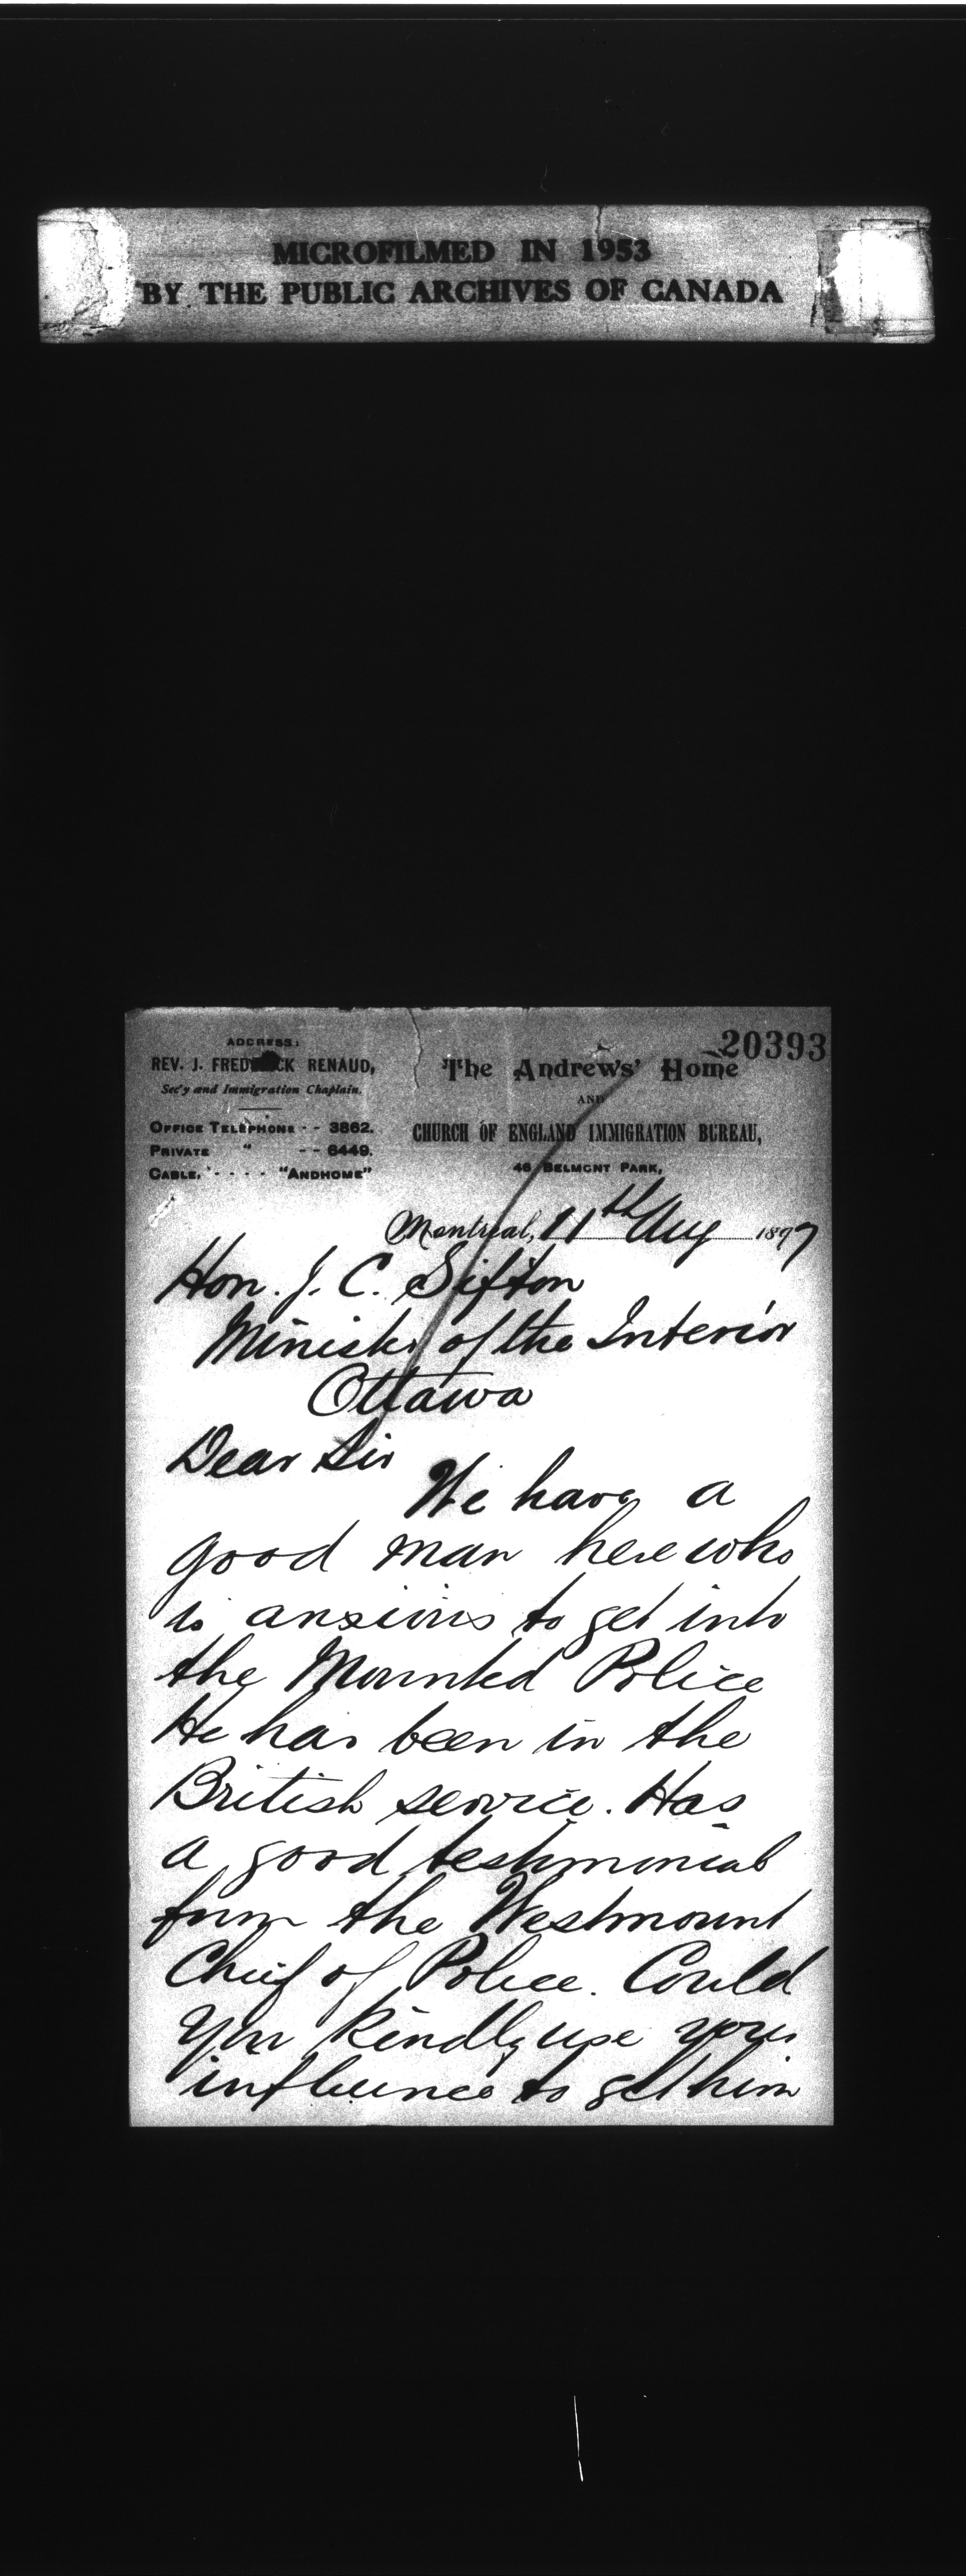 MICROFILMED IN 1953
BY THE PUBLIC ARCHIVES OF CANADA
20393
ADDRESS:
REV. J. FREDERICK RENAUD,
Sec'y and Immigration Chaplain.
OFFICE TELEPHONE - - 3862.
PRIVATE " - - 6449.
CABLE, - - - - "ANDHOME"
The Andrews' Home
AND
CHURCH OF ENGLAND IMMIGRATION BUREAU,
46 BELMONT PARK,
Montreal, 11th Aug 1897
Hon. J. C. Sifton
Minister of the Interior
Ottawa
Dear Sir
We have a
good man here who
is anxious to get into
the Mounted Police
He has been in the
British service. Has
a good testimonial
from the Westmount
Chief of Police. Could
you kindly use your
influence to get him